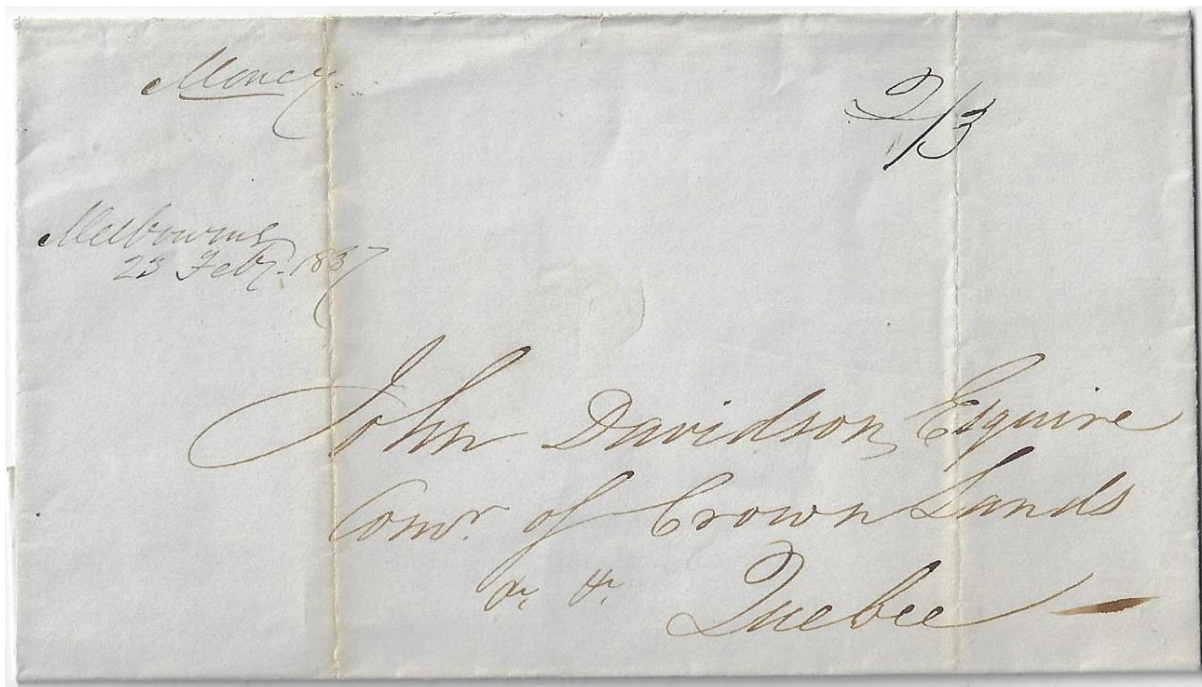 Money
2/3
Melbourne
23 Feby. 1837
John Davidson, Esquire
Comr. of Crown Lands
&c. &c. Quebec